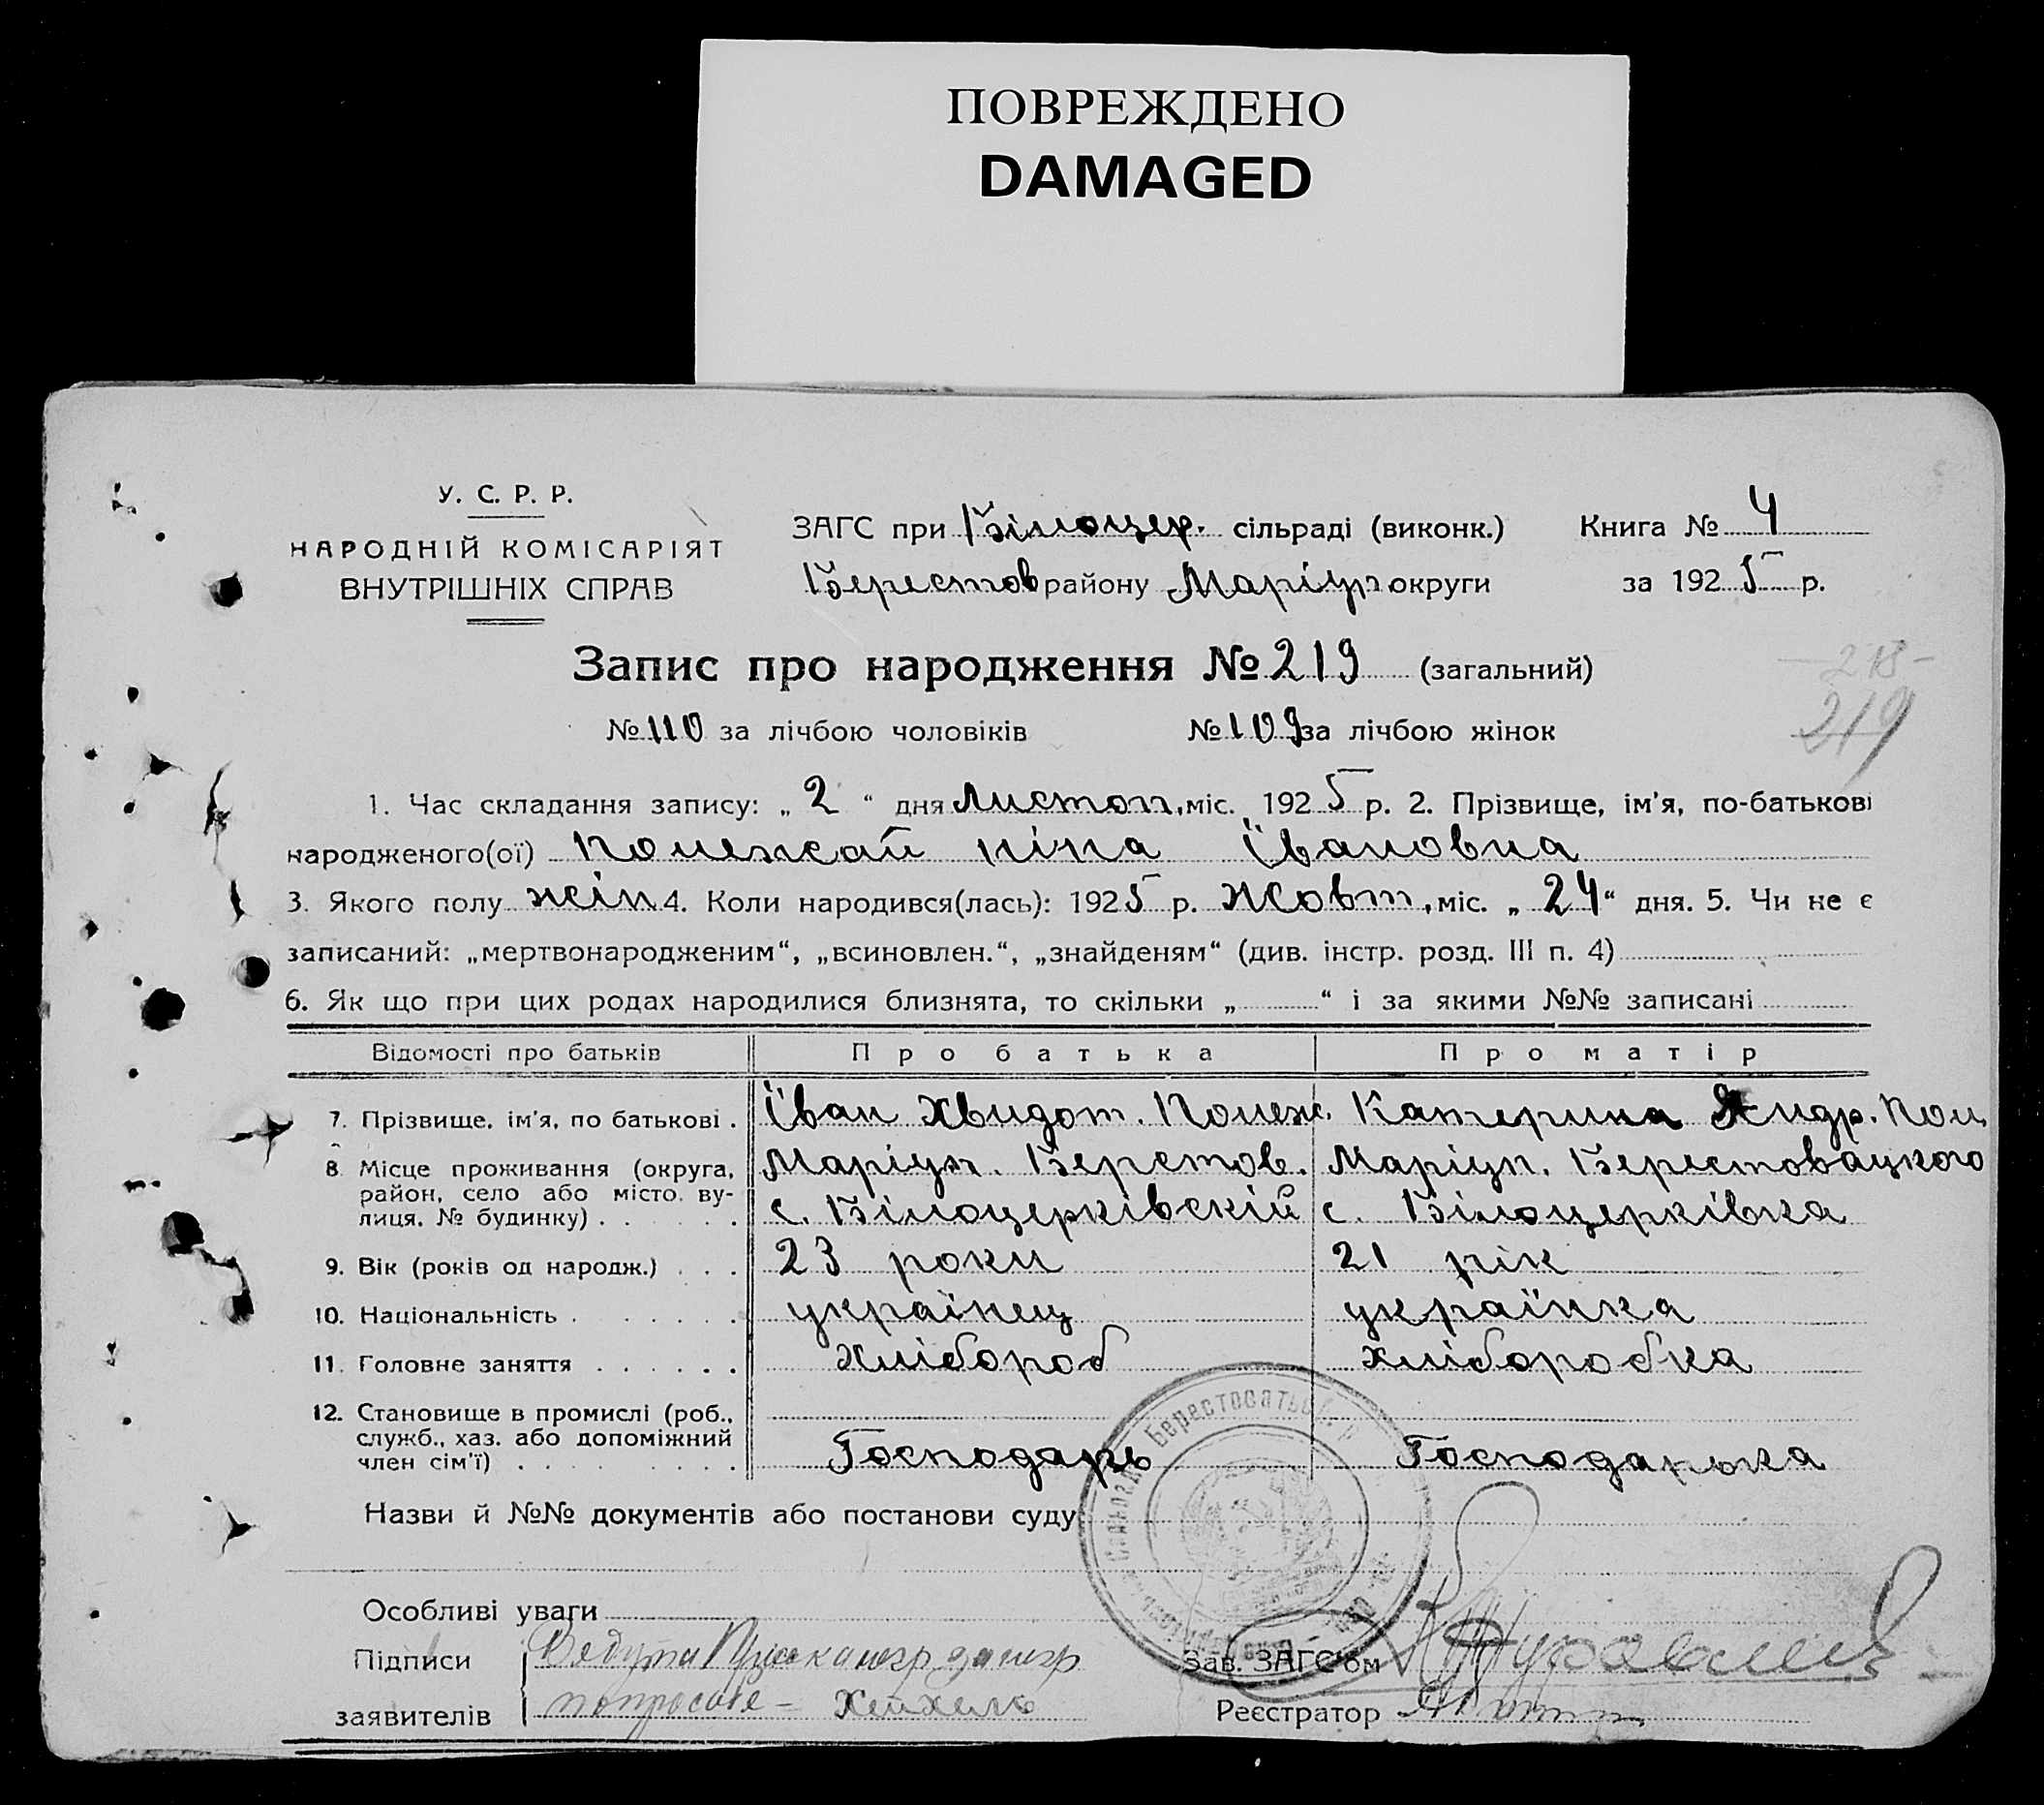 ПОВРЕЖДЕНО
DAMAGED
У. С. Р. Р.
НАРОДНІЙ КОМІСАРІЯТ
ВНУТРІШНІХ СПРАВ
ЗАГС при Білоцер. сільраді (виконк.) Книга № 4
Берестов району Маріуп округи за 1925 р.
Запис про народження № 219 (загальний)
218
219
№ 110 за лічбою чоловіків № 109 за лічбою жінок
1. Час складання запису: „ 2 “ дня листоп. міс. 1925 р. 2. Прізвище, ім'я, по-батькові
народженого(ої) Полежай ніна Івановна
3. Якого полу жін 4. Коли народився(лась): 1925 р. Жовт. міс. „ 24 “ дня. 5. Чи не є
записаний: „мертвонародженим“, „всиновлен.“, „знайденям“ (див. інстр. розд. III п. 4)
6. Як що при цих родах народилися близнята, то скільки „ “ і за якими №№ записані
Відомості про батьків Про батька Про матір
7. Прізвище, ім'я, по батькові . Іван Хвидот. Полеж. Катерина Андр. Пол
8 Місце проживання (округа, Маріуп. Берстов. Маріуп. Берестовацкого
район, село або місто, ву-
лиця, № будинку) . . . . . . с. Білоцерківскій с. Білоцерківка
9. Вік (років од народж.) . . . 23 роки 21 рік
10. Національність . . . . . . . українец українка
11. Головне заняття . . . . . . хлібороб хліборобка
12. Становище в промислі (роб.,
служб., хаз. або допоміжний
член сім'ї) . . . . . . . . Господарь Господарька
Назви й №№ документів або постанови суду
Особливі уваги
Підписи
заявителів
Зав. ЗАГС'ом
Реєстратор